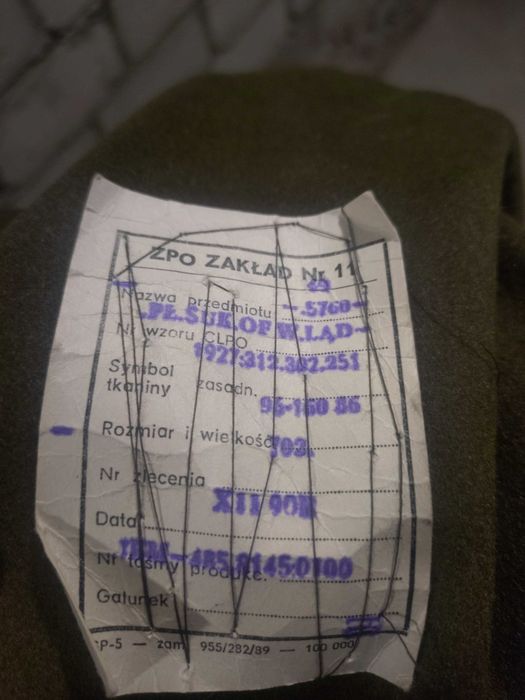 ZPO ZAKŁAD Nr 11
Nazwa przedmiotu -.5760-
-PŁ.SUK.OF W.LĄD-
Nr wzoru CLPO
1927.312.302.251
Symbol
tkaniny zasadn.
96-160 86
Rozmiar i wielkość
Nr zlecenia
Data
Nr taśmy produkc.
Gatunek
P-5 — zam. 955/282/89 — 100 000